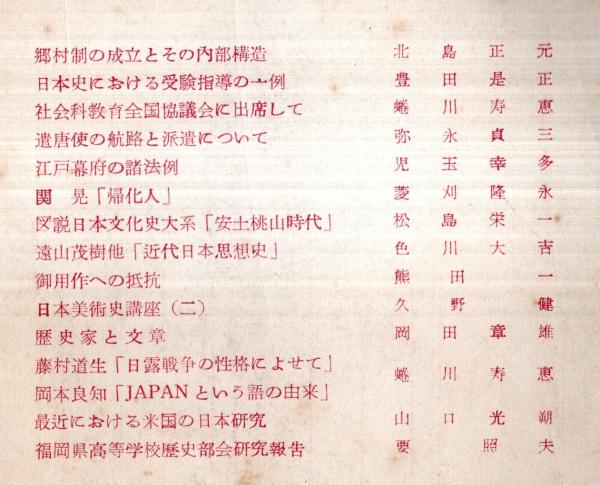 郷村制の成立とその内部構造 北島正元
日本史における受験指導の一例 豊田是正
社会科教育全国協議会に出席して 蜷川寿恵
遣唐使の航路と派遣について 弥永貞三
江戸幕府の諸法例 児玉幸多
関 晃「帰化人」 菱刈隆永
図説日本文化史大系「安土桃山時代」 松島栄一
遠山茂樹他「近代日本思想史」 色川大吉
御用作への抵抗 熊田一
日本美術史講座（二） 久野健
歴史家と文章 岡田章雄
藤村道生「日露戦争の性格によせて」
蜷川寿恵
岡本良知「JAPANという語の由来」
最近における米国の日本研究 山口光朔
福岡県高等学校歴史部会研究報告 要照夫